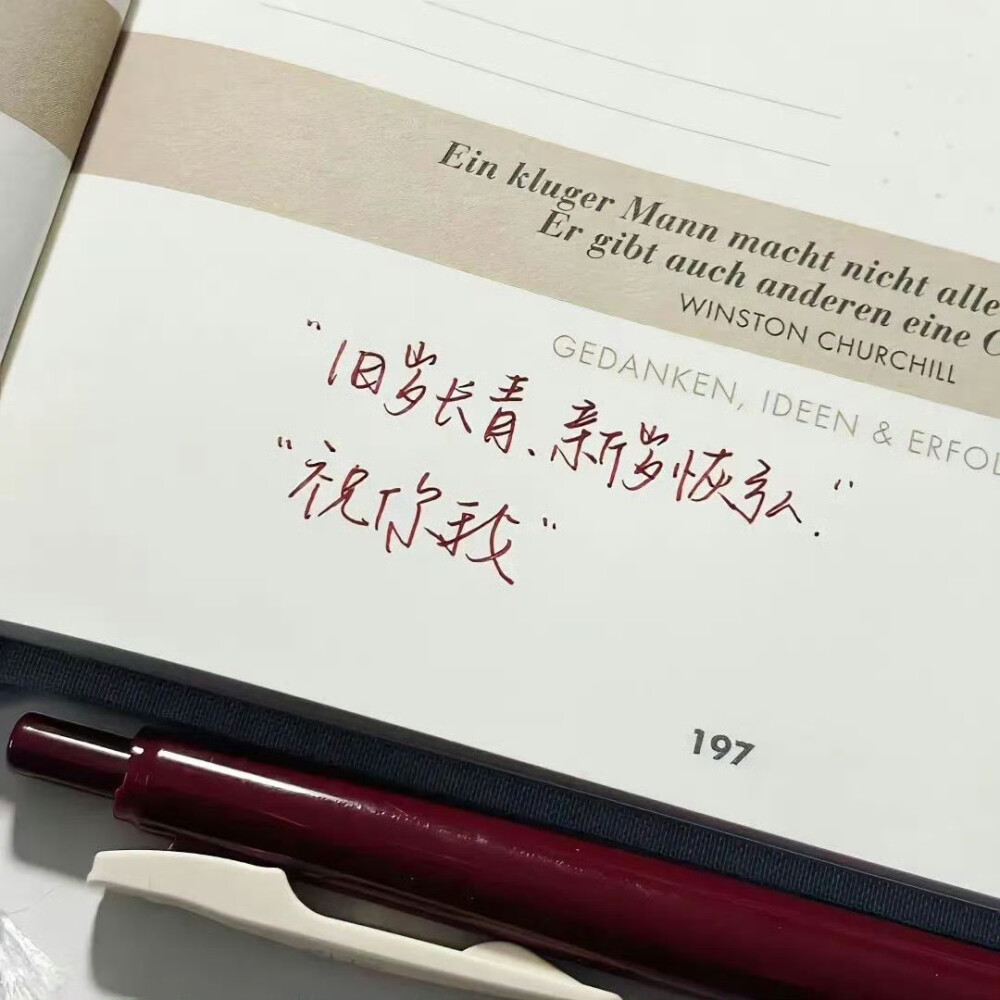 Ein kluger Mann macht nicht alle
Er gibt auch anderen eine
WINSTON CHURCHILL
GEDANKEN, IDEEN & ERFOL
"旧岁长青、新岁恢弘."
"祝你我"
197